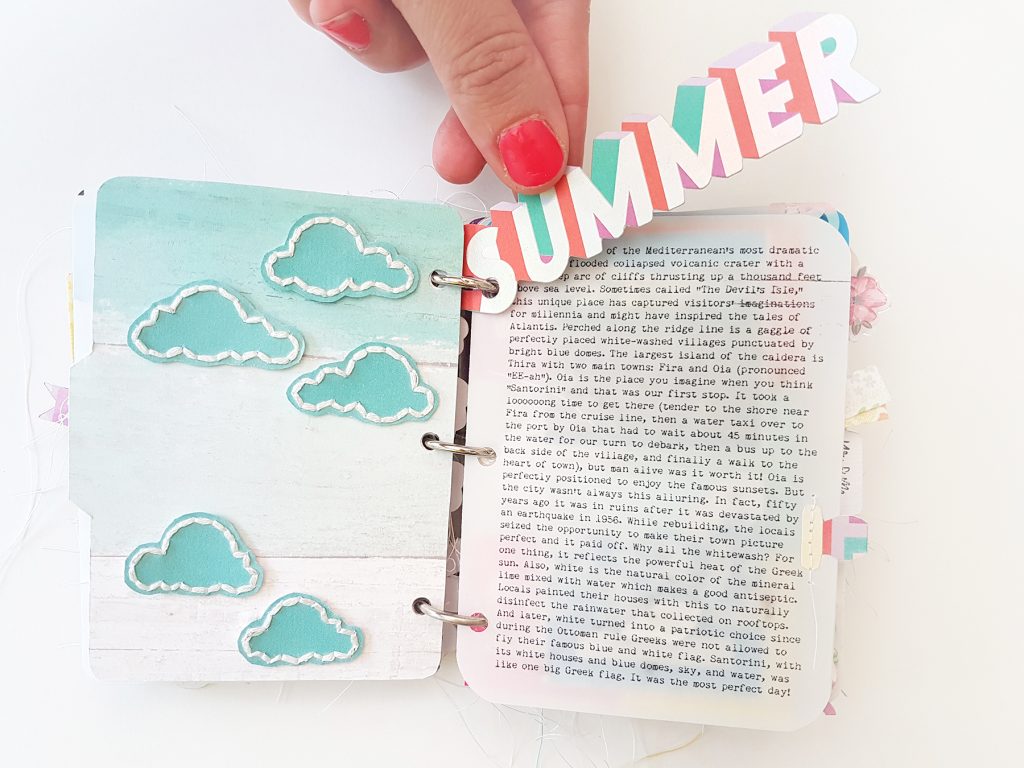 SUMMER
of the Mediterranean's most dramatic
flooded collapsed volcanic crater with a
arc of cliffs thrusting up a thousand feet
above sea level. Sometimes called "The Devil's Isle,"
this unique place has captured visitors' imaginations
for millennia and might have inspired the tales of
Atlantis. Perched along the ridge line is a gaggle of
perfectly placed white-washed villages punctuated by
bright blue domes. The largest island of the caldera is
Thira with two main towns: Fira and Oia (pronounced
"EE-ah"). Oia is the place you imagine when you think
"Santorini" and that was our first stop. It took a
loooooong time to get there (tender to the shore near
Fira from the cruise line, then a water taxi over to
the port by Oia that had to wait about 45 minutes in
the water for our turn to debark, then a bus up to the
back side of the village, and finally a walk to the
heart of town), but man alive was it worth it! Oia is
perfectly positioned to enjoy the famous sunsets. But
the city wasn't always this alluring. In fact, fifty
years ago it was in ruins after it was devastated by
an earthquake in 1956. While rebuilding, the locals
seized the opportunity to make their town picture
perfect and it paid off. Why all the whitewash? For
one thing, it reflects the powerful heat of the Greek
sun. Also, white is the natural color of the mineral
lime mixed with water which makes a good antiseptic.
Locals painted their houses with this to naturally
disinfect the rainwater that collected on rooftops.
And later, white turned into a patriotic choice since
during the Ottoman rule Greeks were not allowed to
fly their famous blue and white flag. Santorini, with
its white houses and blue domes, sky, and water, was
like one big Greek flag. It was the most perfect day!